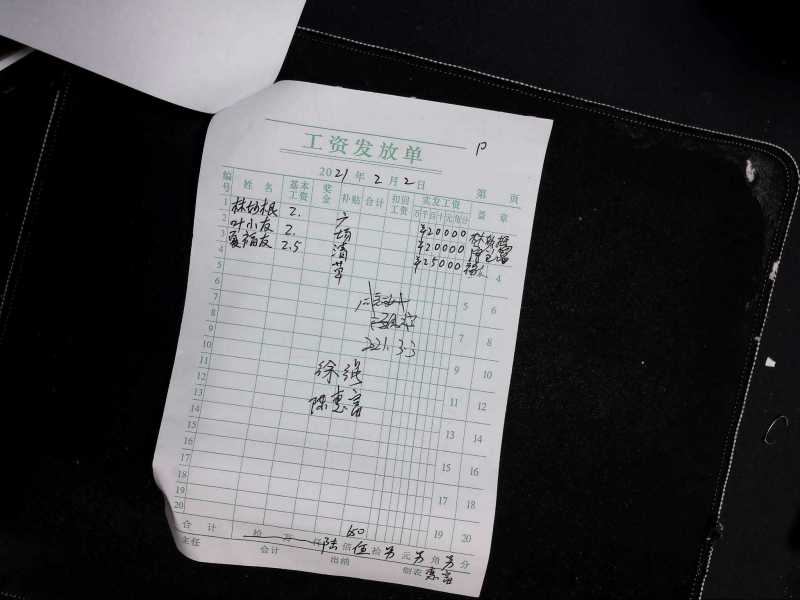 工资发放单
2021年2月2日
第 页
编号 姓名 基本工资 奖金 补贴 合计 初回工资 实发工资 盖章
万千百十元角分
1 林场根 2. 广 ¥20000
2 叶小友 2. 场 ¥20000
3 夏福友 2.5 清 ¥25000
4 草 4
5
6 5 6
7
8 7 8
9
10 9 10
11
12 徐强 11 12
13 陈惠富
14 13 14
15
16 15 16
17
18 17 18
19
20 19 20
2021.3.3
650
合计 拾 万 仟 陆佰伍拾另元另角另分
主任 会计 出纳 制表 惠富